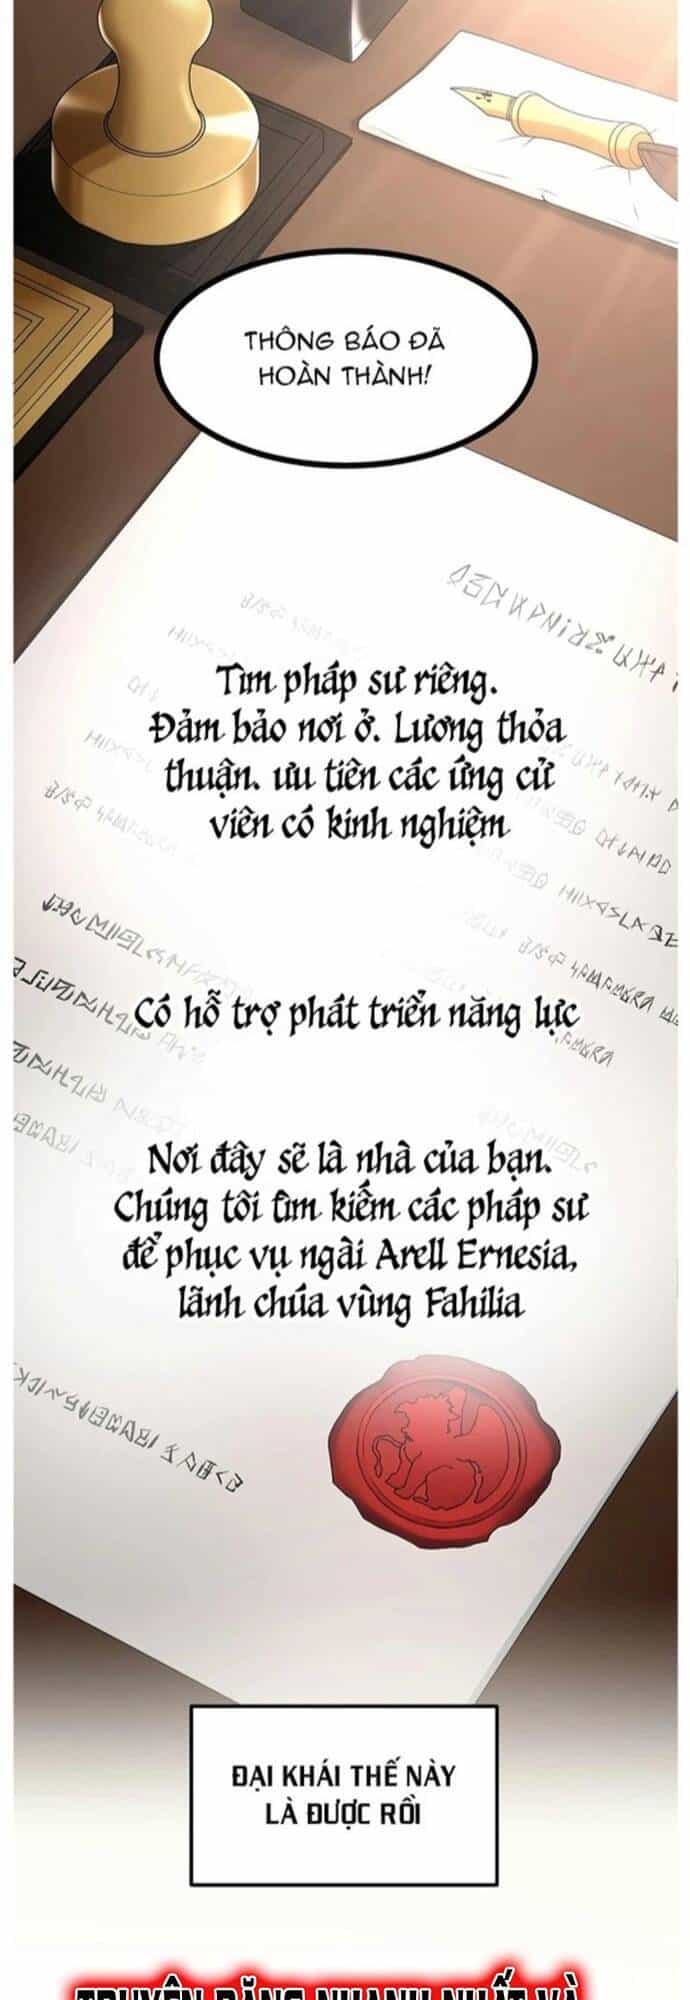 THÔNG BÁO ĐÃ
HOÀN THÀNH!
Tìm pháp sư riêng.
Đảm bảo nơi ở. Lương thỏa
thuận. ưu tiên các ứng cử
viên có kinh nghiệm
Có hỗ trợ phát triển năng lực
Nơi đây sẽ là nhà của bạn.
Chúng tôi tìm kiếm các pháp sư
để phục vụ ngài Arell Ernesia,
lãnh chúa vùng Fahilia
ĐẠI KHÁI THẾ NÀY
LÀ ĐƯỢC RỒI
TRUYỆN ĐĂNG NHANH NHẤT VÀ